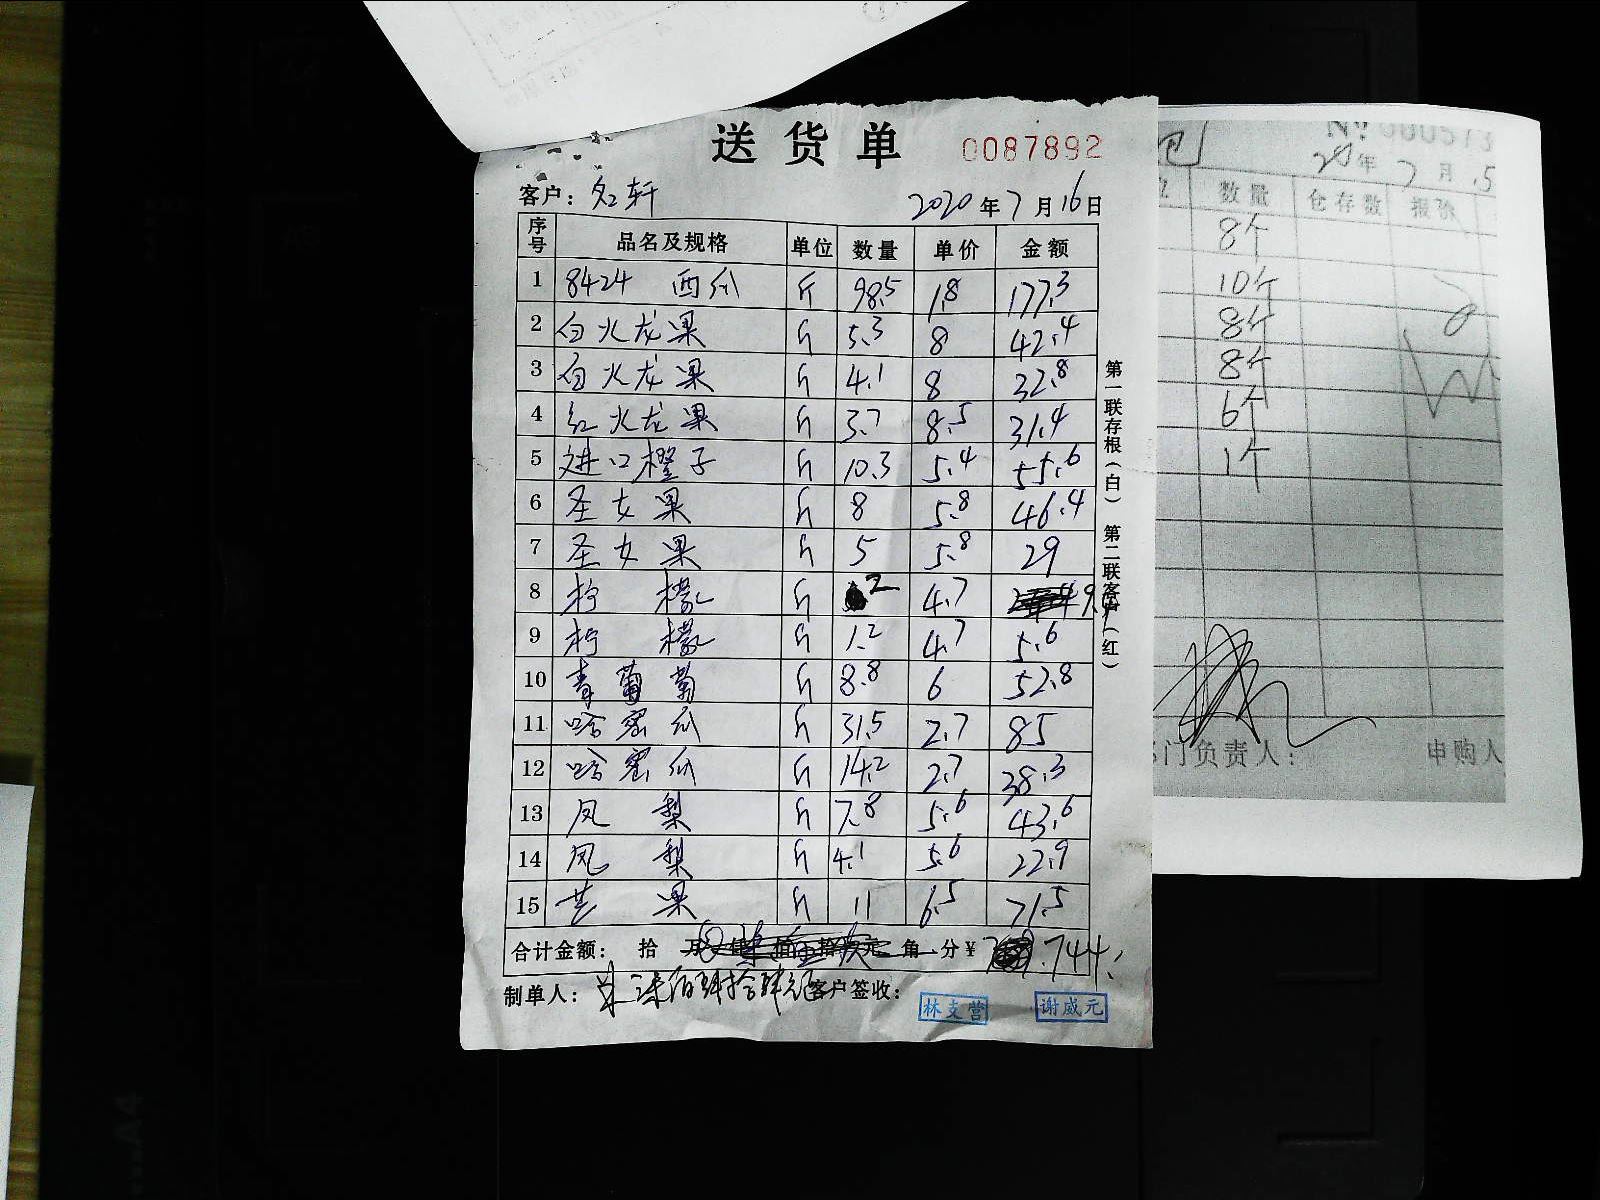 送货单 0087892
客户: 2020年7月16日
序号 品名及规格 单位 数量 单价 金额
1 8424 西瓜 斤 98.5 1.8 177.3
2 白火龙果 斤 5.3 8 42.4
3 白火龙果 斤 4.1 8 32.8
4 红火龙果 斤 3.7 8.5 31.4
5 进口橙子 斤 10.3 5.4 55.6
6 圣女果 斤 8 5.8 46.4
7 圣女果 斤 5 5.8 29
8 柠檬 斤 2 4.7
9 柠檬 斤 1.2 4.7 5.6
10 青葡萄 斤 8.8 6 52.8
11 哈密瓜 斤 31.5 2.7 85
12 哈密瓜 斤 14.2 2.7 38.3
13 凤梨 斤 7.8 5.6 43.6
14 凤梨 斤 4.1 5.6 22.9
15 芒果 斤 11 6.5 71.5
合计金额: 拾 角 分 ¥ 744
制单人: 客户签收:
林支营 谢威元
第一联存根(白) 第二联客户(红)
年 7月
数量 仓存数
8个
10个
8个
8个
6个
1个
门负责人: 申购人